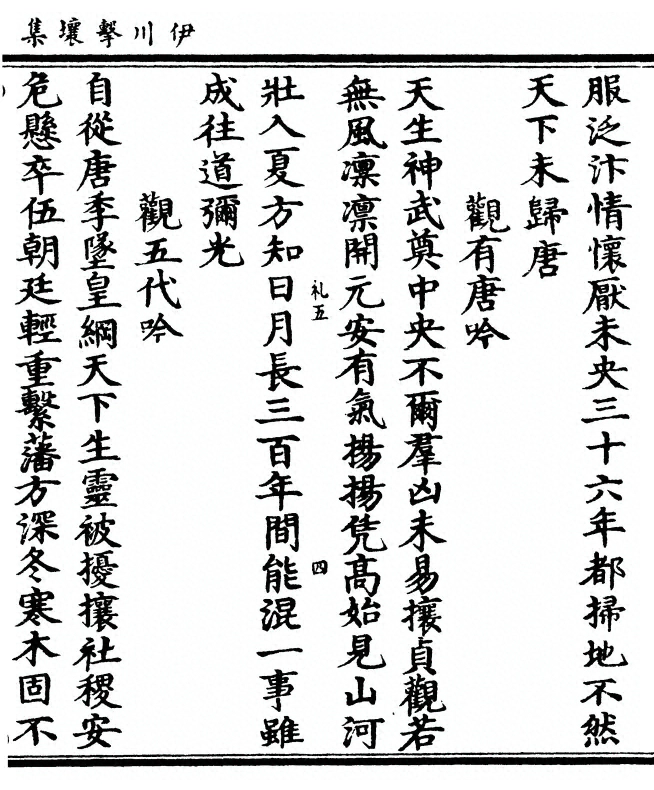 伊川擊壤集
服泛汴情懷厭未央三十六年都掃地不然
天下未歸唐
觀有唐吟
天生神武奠中央不爾羣凶未易攘貞觀若
無風凜凜開元安有氣揚揚凭高始見山河
壯入夏方知日月長三百年間能混一事雖
成往道彌光
觀五代吟
自從唐季墜皇綱天下生靈被擾攘社稷安
危懸卒伍朝廷輕重繫藩方深冬寒木固不
礼五
四